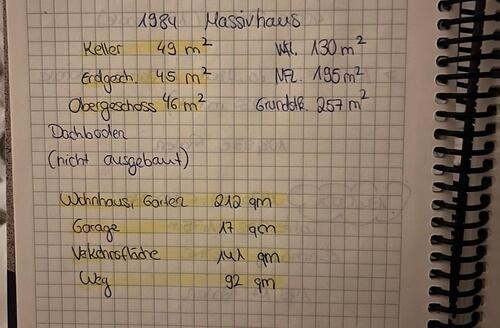 1984 Massivhaus
Keller 49 m² Wfl. 130 m²
Erdgesch. 45 m² NFL. 195 m²
Obergeschoss 46 m² Grundstk. 257 m²
Dachboden
(nicht ausgebaut)
Wohnhaus, Garten 212 qm
Garage 17 qm
Verkehrsfläche 141 qm
Weg 92 qm